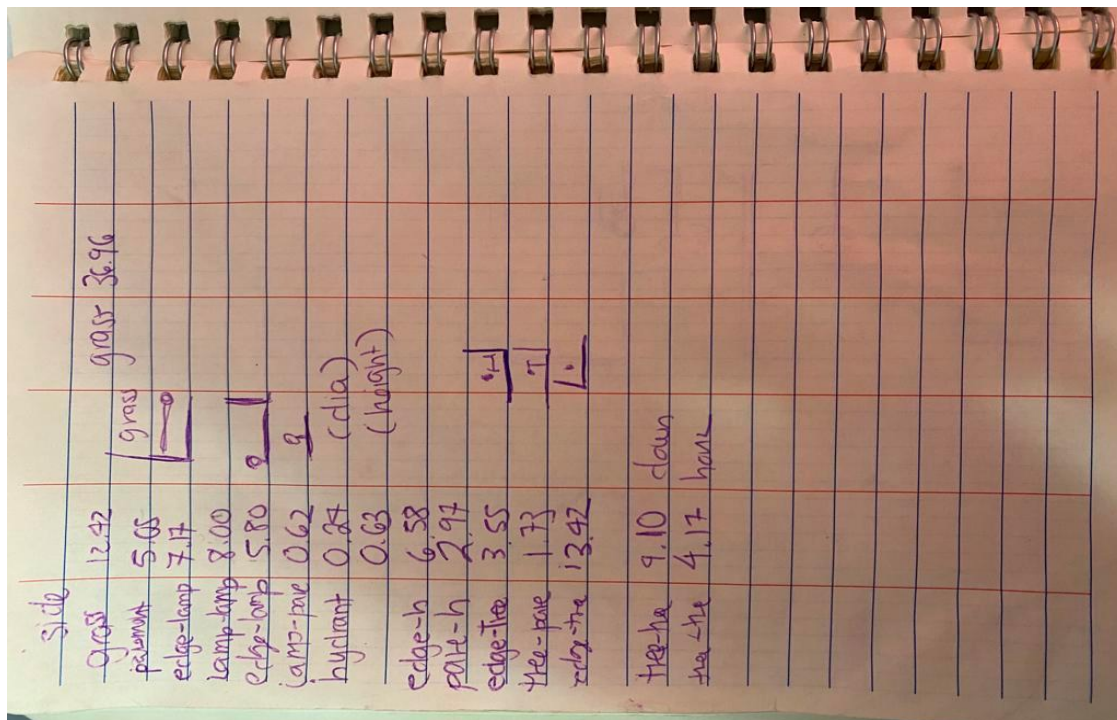 side
grass 12.42 grass 36.96
pavement 5.05 grass
edge-lamp 7.17
lamp-lamp 8.00
edge-lamp 5.80
lamp-pave 0.62
hydrant 0.24 (dia)
0.63 (height)
edge-h 6.58
pave-h 2.97
edge-tree 3.55 H
tree-pave 1.73 T
edge-tre 13.42
tree-tree 9.10 down
tree-tre 4.17